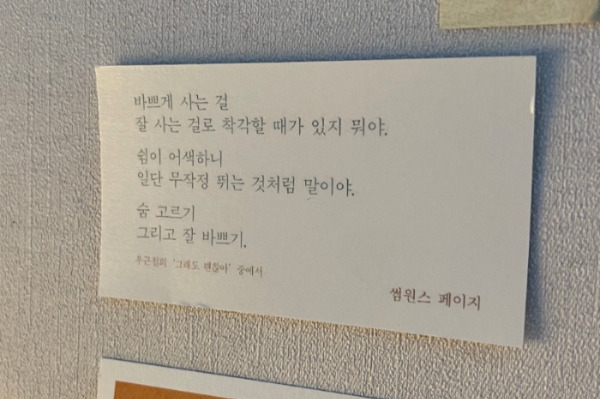 바쁘게 사는 걸
잘 사는 걸로 착각할 때가 있지 뭐야.
쉼이 어색하니
일단 무작정 뛰는 것처럼 말이야.
숨 고르기
그리고 잘 바쁘기.
우근철의 '그래도 괜찮아' 중에서
썸원스 페이지